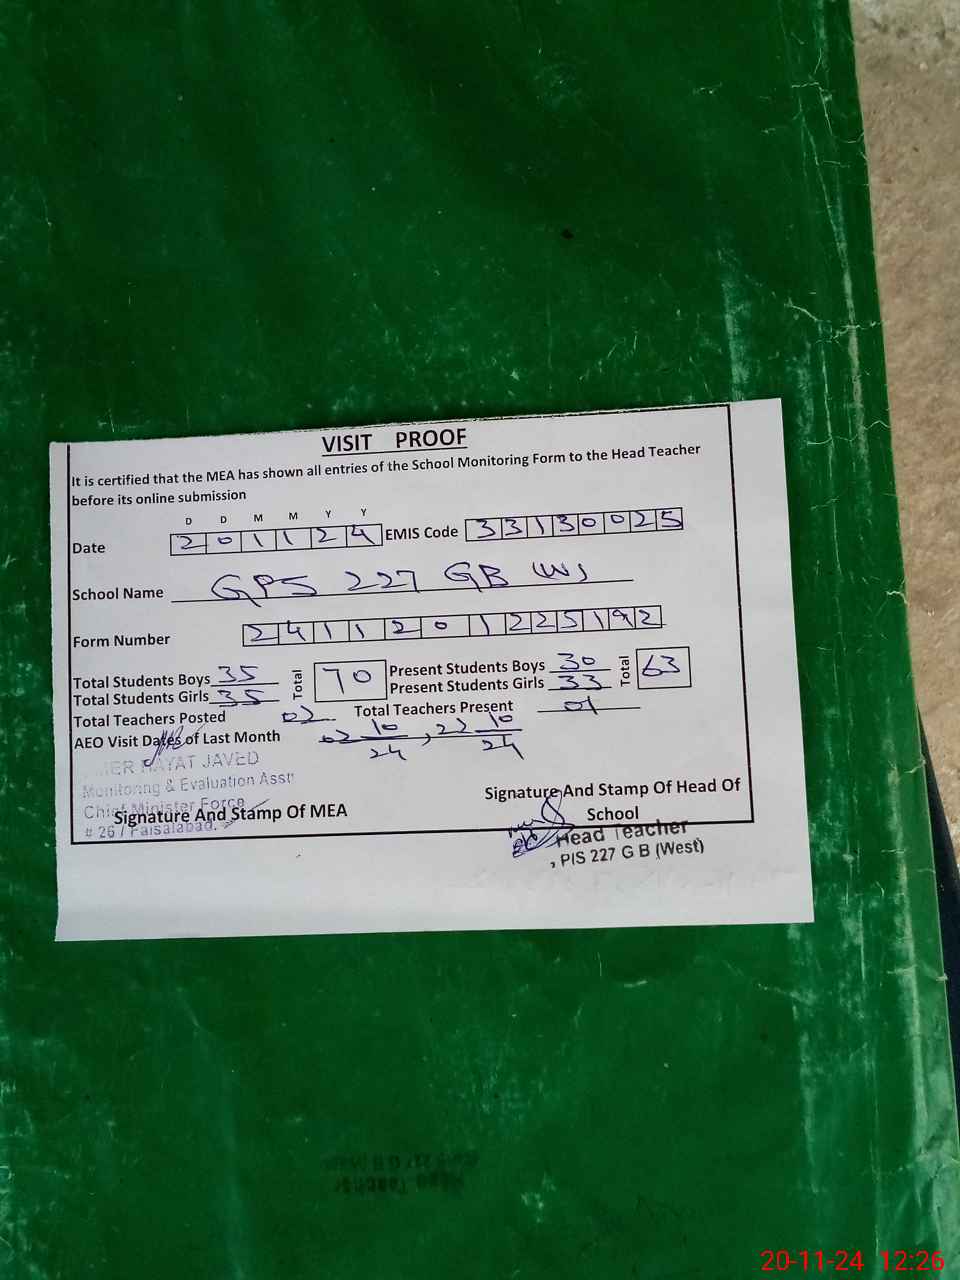 VISIT PROOF
It is certified that the MEA has shown all entries of the School Monitoring Form to the Head Teacher
before its online submission
D D M M Y Y
Date 2 0 1 1 2 4 EMIS Code 3 3 1 3 0 0 2 5
School Name GPS 227 GB (W)
Form Number 2 4 1 1 2 0 1 2 2 5 1 9 2
Total Students Boys 35 Total 70 Present Students Boys 30 Total 63
Total Students Girls 35 Present Students Girls 33
Total Teachers Posted 02 Total Teachers Present 01
AEO Visit Dates of Last Month 02 10/24, 22 10/24
HAYAT JAVED
Monitoring & Evaluation Asstt
Chief Minister Force
# 26 / Faisalabad.
Signature And Stamp Of MEA
Signature And Stamp Of Head Of
School
Head Teacher
, PIS 227 G B (West)
20-11-24 12:26